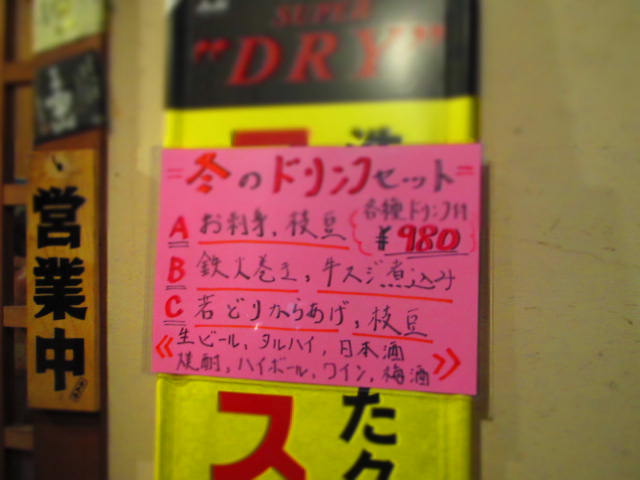 SUPER
"DRY"
営業中
冬のドリンクセット
各種ドリンク付
¥980
A お刺身、枝豆
B 鉄火巻き、牛スジ煮込み
C 若どりからあげ、枝豆
《生ビール、タルハイ、日本酒
焼酎、ハイボール、ワイン、梅酒》
ス
たク